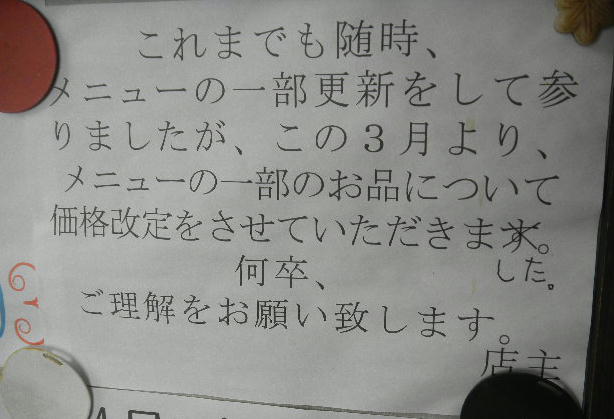 これまでも随時、
メニューの一部更新をして参
りましたが、この3月より、
メニューの一部のお品について
価格改定をさせていただきます。
した。
何卒、
ご理解をお願い致します。
店主